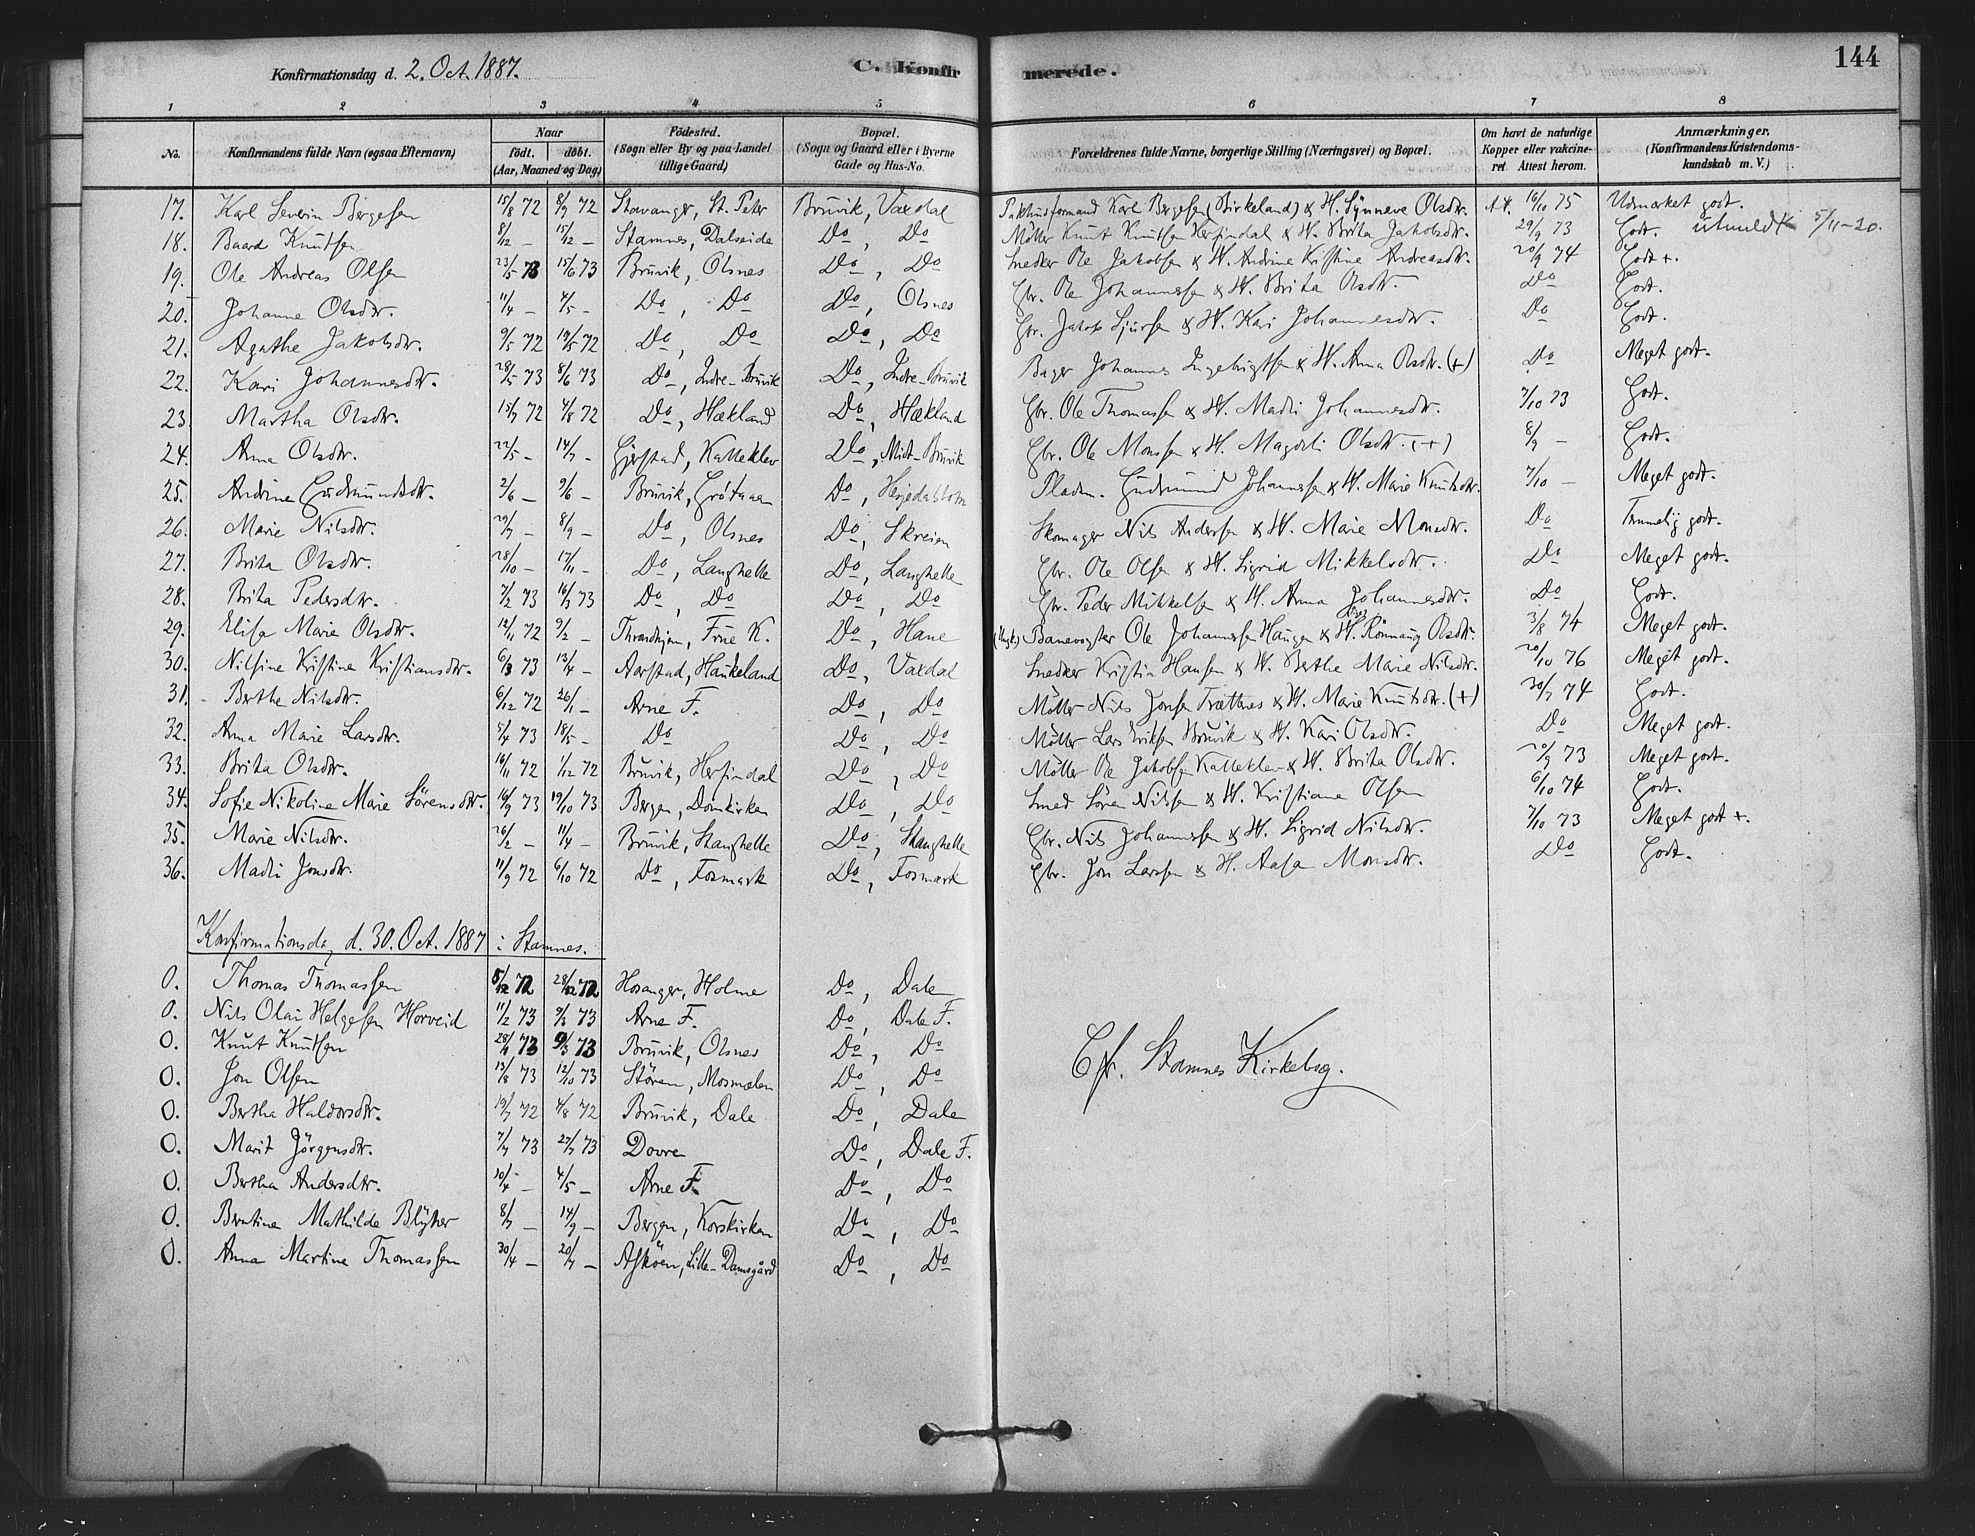 Konfirmationsdag d. 2. Oct. 1887.
C. Konfirmerede.
144
1 2 3 4 5 6 7 8
No. Konfirmandens fulde Navn (ogsaa Efternavn) Naar født. døbt. (Aar, Maaned og Dag) Fødested. (Sogn eller By og paa Landet tillige Gaard) Bopæl. (Sogn og Gaard eller i Byerne Gade og Hus-No. Forældrenes fulde Navne, borgerlige Stilling (Næringsvei) og Bopæl. Om havt de naturlige Kopper eller vakcineret. Attest herom. Anmærkninger. (Konfirmandens Kristendomskundskab m. V.)
17. Karl Severin Bergesen 15/8 72 8/9 72 Stavanger, St. Peter Bruvik, Vaxdal Pakhusformand Karl Bergesen (Birkeland) & H. Synneve Olsdtr. 16/10 75 Udmærket godt.
18. Baard Knutsen 8/12 – 15/12 – Stamnes, Dalseide Do, Do Møller Knut Knutsen Herfindal & H. Brita Jakobsdtr. 29/9 73 Godt. utmeldt 5/11-20.
19. Ole Andreas Olsen 23/5 73 15/6 73 Bruvik, Olsnes Do, Do Snedker Ole Jakobsen & H. Andrine Kristine Andreasdtr. 20/9 74 Godt +.
20. Johanne Olsdtr. 11/4 – 4/5 – Do, Do Do, Olsnes Gbr. Ole Johannessen & H. Brita Olsdtr. Do Godt.
21. Agathe Jakobsdtr. 9/5 72 19/5 72 Do, Do Do, Do Gbr. Jakob Sjursen & H. Kari Johannesdtr. Do Godt.
22. Kari Johannesdtr. 28/5 73 8/6 73 Do, Indre-Bruvik Do, Indre-Bruvik Bager Johannes Ingebrigtsen & H. Anna Olsdtr. (+) Do Meget godt.
23. Martha Olsdtr. 15/7 72 4/8 72 Do, Hækland Do, Hækland Gbr. Ole Thomassen & H. Madli Johannesdtr. 7/10 73 Godt.
24. Anna Olsdtr. 22/5 – 14/7 – Gjerstad, Katteklev Do, Midt-Bruvik Gbr. Ole Monsen & H. Magdli Olsdtr. (+) 8/9 – Godt.
25. Andrine Gudmundsdtr. 2/6 – 9/6 – Bruvik, Do, Pladsm. Gudmund Johannessen & H. Marie Knutsdtr. 7/10 – Meget godt.
26. Marie Nilsdtr. 29/7 – 8/9 – Do, Olsnes Do, Skreien Skomager Nils Andersen & H. Marie Monsdtr. Do Temmelig godt.
27. Brita Olsdtr. 28/10 – 17/11 – Do, Langhelle Do, Langhelle Gbr. Ole Olsen & H. Sigrid Mikkelsdtr. Do Meget godt.
28. Brita Pedersdtr. 7/2 73 16/3 73 Do, Do Do, Do Gbr. Peder Mikkelsen & H. Anna Johannesdtr. Do Godt.
29. Elisa Marie Olsdtr. 12/11 72 9/2 – Throndhjem, Frue K. Do, Hane Banevogter Ole Johannessen Haugen & H. Rönnaug Olsdtr. 3/8 74 Meget godt.
30. Nilsine Kristine Kristiansdtr. 6/3 73 13/4 – Aarstad, Haukeland Do, Vaxdal Snedker Kristian Hansen & H. Berthe Marie Nilsdtr. 20/10 76 Meget godt.
31. Berthe Nilsdtr. 6/12 72 26/1 – Arne F. Do, Do Møller Nils Jonsen Trættenes & H. Marie Knutsdtr. (+) 30/7 74 Godt.
32. Anna Marie Larsdtr. 5/4 73 18/5 – Do Do, Do Møller Lars Eriksen Bruvik & H. Kari Olsdtr. Do Meget godt.
33. Brita Olsdtr. 16/11 72 1/12 72 Bruvik, Herfindal Do, Do Møller Ole Jakobsen Katteklev & H. Brita Olsdtr. 20/9 73 Meget godt.
34. Sofie Nikoline Marie Sörensdtr. 16/9 73 19/10 73 Bergen, Domkirken Do, Do Smed Sören Nilsen & H. Kristiane Olsen 6/10 74 Godt.
35. Marie Nilsdtr. 26/2 – 11/4 – Bruvik, Stanghelle Do, Stanghelle Gbr. Nils Johannessen & H. Sigrid Nilsdtr. 7/10 73 Meget godt +.
36. Madli Jonsdtr. 11/9 72 6/10 72 Do, Fosmark Do, Fosmark Gbr. Jon Larssen & H. Aasa Monsdtr. Do Godt.
Konfirmationsdag d. 30. Oct. 1887 i Stamnes.
0. Thomas Thomassen 72 72 Hosanger, Holme Do, Dale
0. Nils Olai Helgesen Horveid 11/2 73 9/3 73 Arne F. Do, Dale F.
0. Knut Knutsen 73 9/3 73 Bruvik, Olsnes Do, Do
0. Jon Olsen 13/8 73 12/10 73 Stören, Do, Do
Cfr. Stamnes Kirkebog.
0. Bertha Haldorsdtr. 19/7 72 4/8 72 Bruvik, Dale Do, Dale
0. Marit Jörgensdtr. 7/7 73 27/7 73 Dovre Do, Dale F.
0. Bertha Andersdtr. 30/4 – 4/5 – Arne F. Do, Do
0. Berntine Mathilde Blÿher 8/7 – 14/9 – Bergen, Korskirken Do, Do
0. Anna Martine Thomassen 30/4 – 20/7 – Askøen, Lille-Damsgård Do, Do